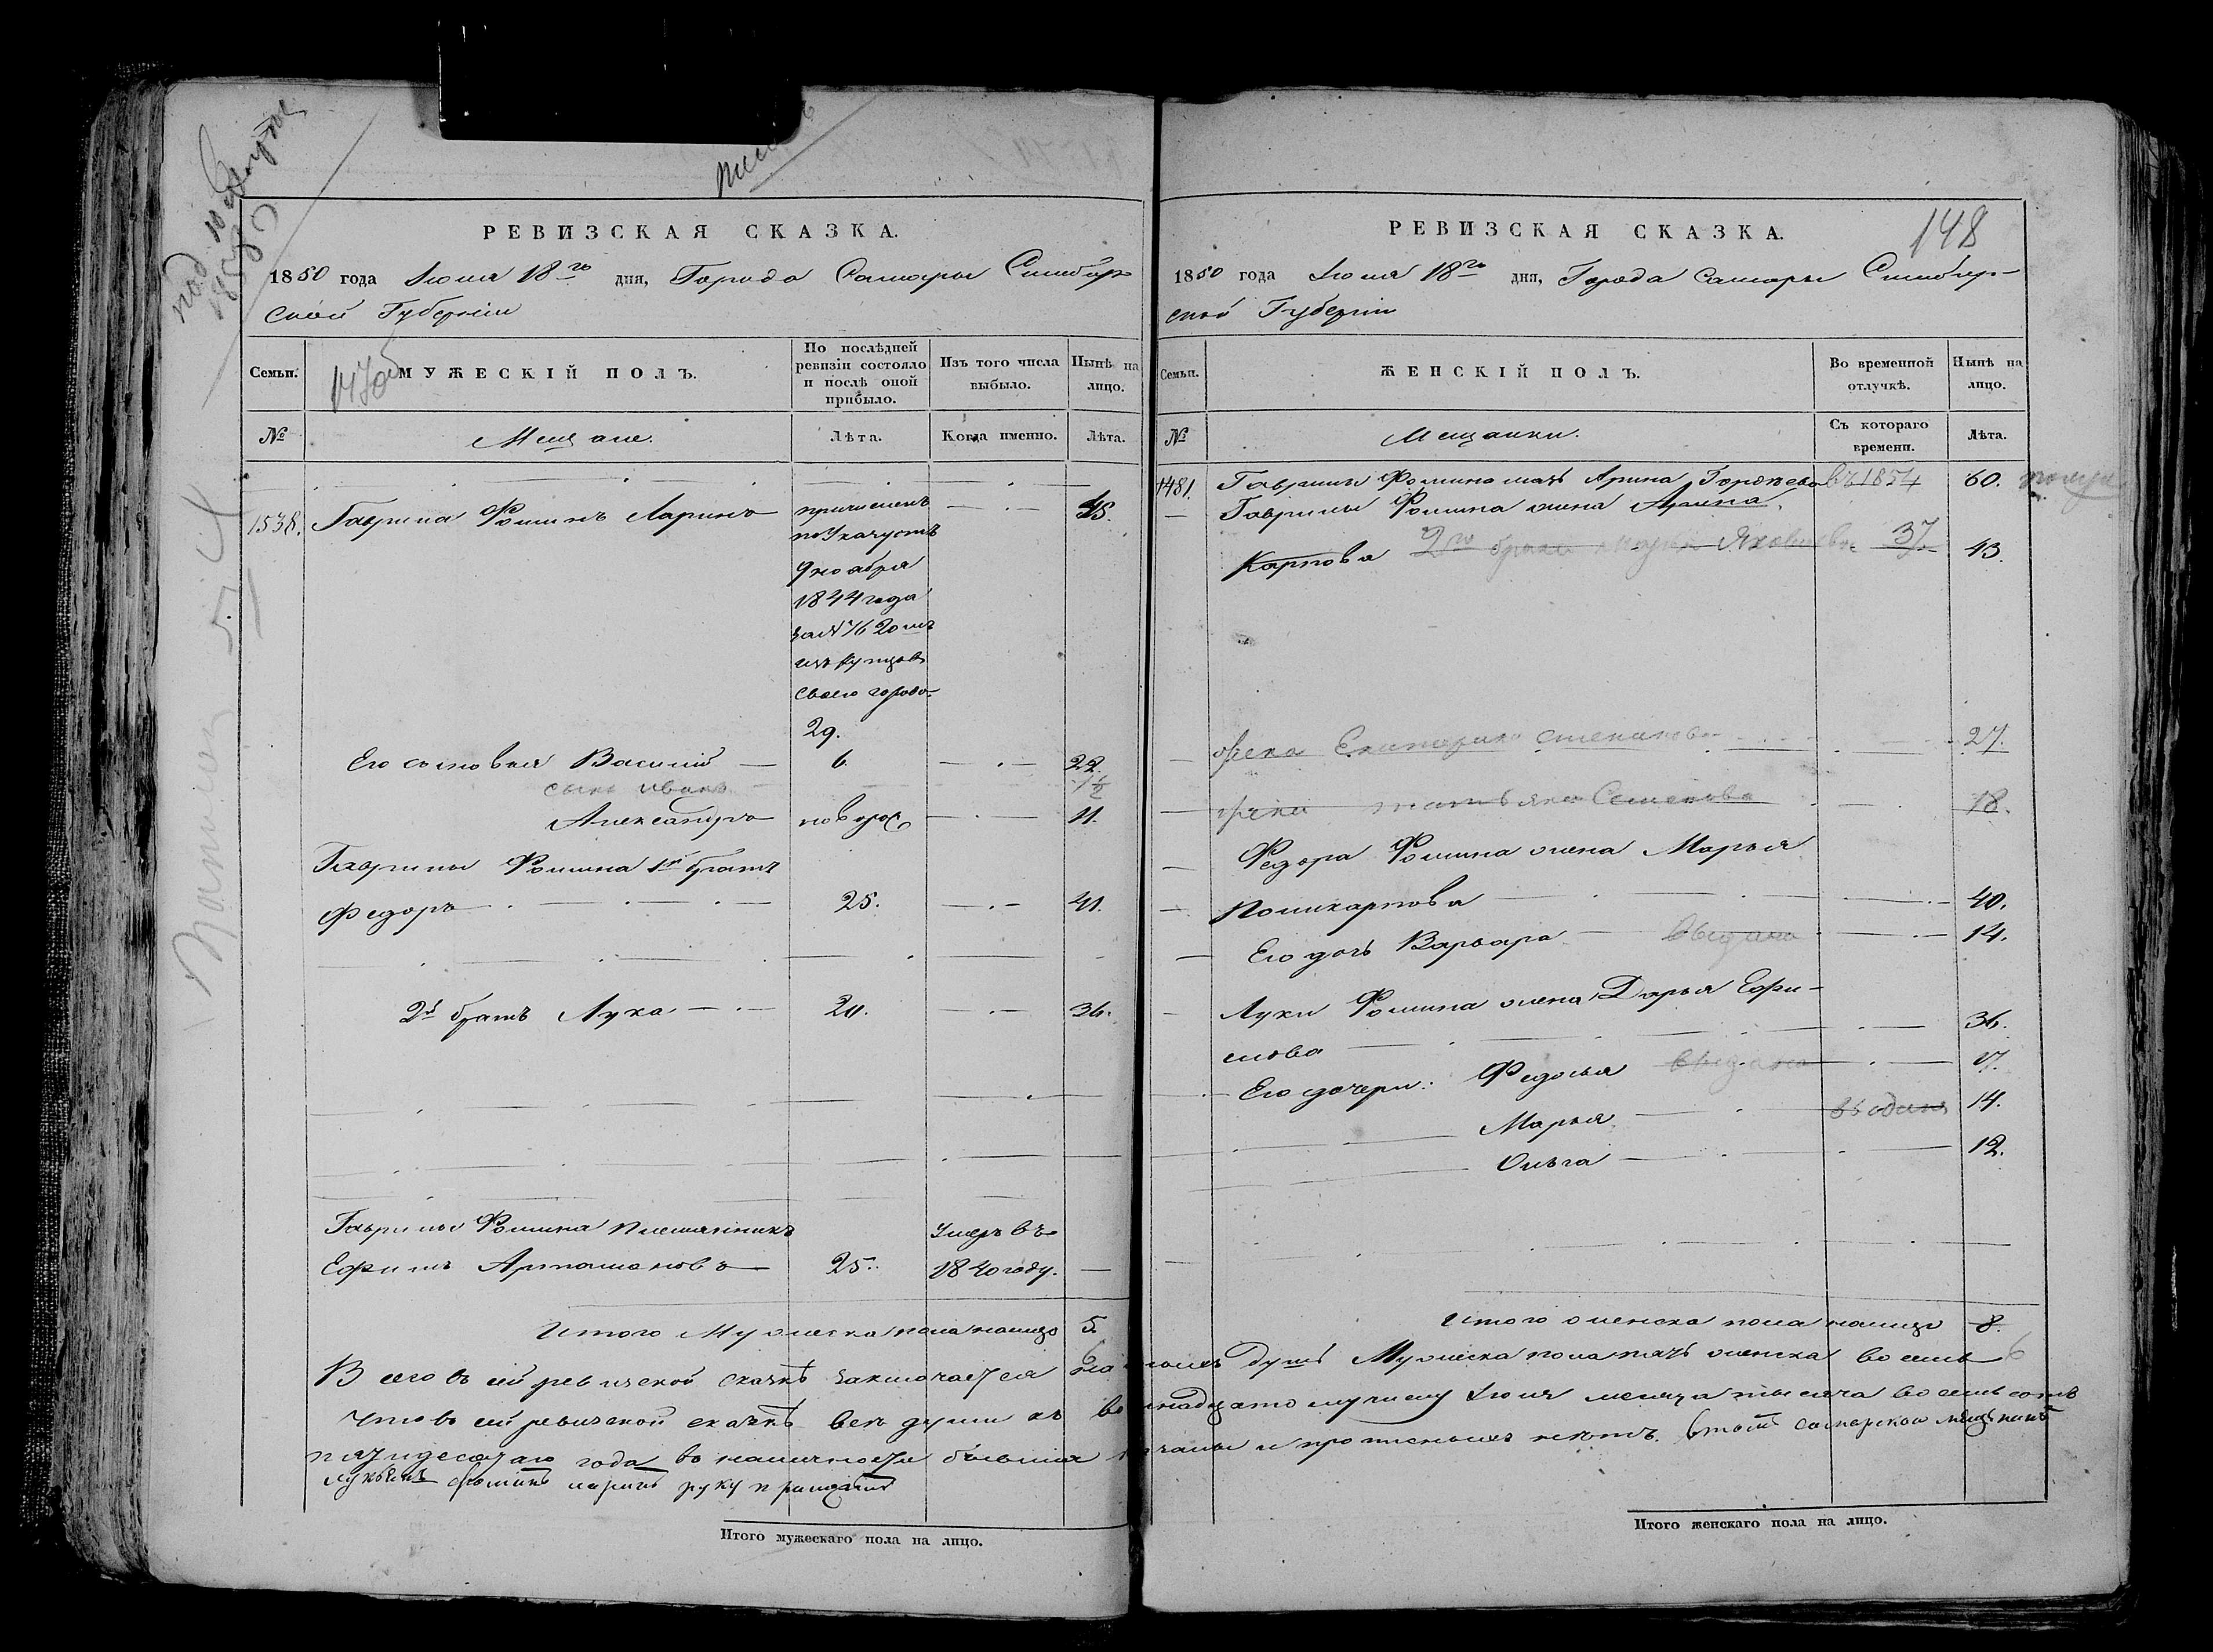 РЕВИЗСКАЯ СКАЗКА.
1850 года Июня 18го дня, Города Самары Симбир-
ской Губерніи
Семьи.
МУЖЕСКІЙ ПОЛЪ.
По послѣдней ревизіи состояло и послѣ оной прибыло.
Изъ того числа выбыло.
Нынѣ на лицо.
№
Мещане.
Лѣта.
Когда именно.
Лѣта.
1538. Гаврила Фоминъ Ларинъ
причисленъ
по Указу
9 ноября
1844 года
изъ купцовъ
своего города
29.
45.
Его сыновья Василій 6 22.
сынъ Иванъ 1½
Александръ новорож 11.
Гаврилы Фомина 1й братъ
Федоръ 25. 41.
2й братъ Лука 20. 36.
Гаврилы Фомина племянникъ умеръ въ
Ефимъ Артамоновъ 25. 1840 году.
Итого Мужеска пола налицо 5.
РЕВИЗСКАЯ СКАЗКА.
148
1850 года Июня 18го дня, Города Самары Симбир-
ской Губерніи
Семьи.
ЖЕНСКІЙ ПОЛЪ.
Во временной отлучкѣ.
Нынѣ на лицо.
№
Мещанки.
Съ котораго времени.
Лѣта.
1481. Гаврилы Фомина мать Арина въ 1854 60.
Гаврилы Фомина жена Арина
Карпова 2го брака Яковлева 37. 43.
жена Екатерина Степанова 27.
жена Семенова 18.
Федора Фомина жена Марья
Поликарпова 40.
Его дочь Варвара выдана 14.
Луки Фомина жена Дарья Ефи-
мова 36.
Его дочери: Федосья выдана 17.
Марья выдана 14.
Ольга 12.
Итого женска пола налицо 8.
Всего въ сей ревизской сказкѣ заключается налицо душъ Мужеска пола пять женска восемь 6
Что въ сей ревизской сказкѣ всѣ души къ восемнадцатому числу Июня месяца тысяча восемь сотъ
пятидесятаго года въ наличности бывшія показаны и прописныхъ нетъ. самарской мещанинъ
Фоминъ Ларинъ руку приложилъ
Итого мужескаго пола на лицо.
Итого женскаго пола на лицо.